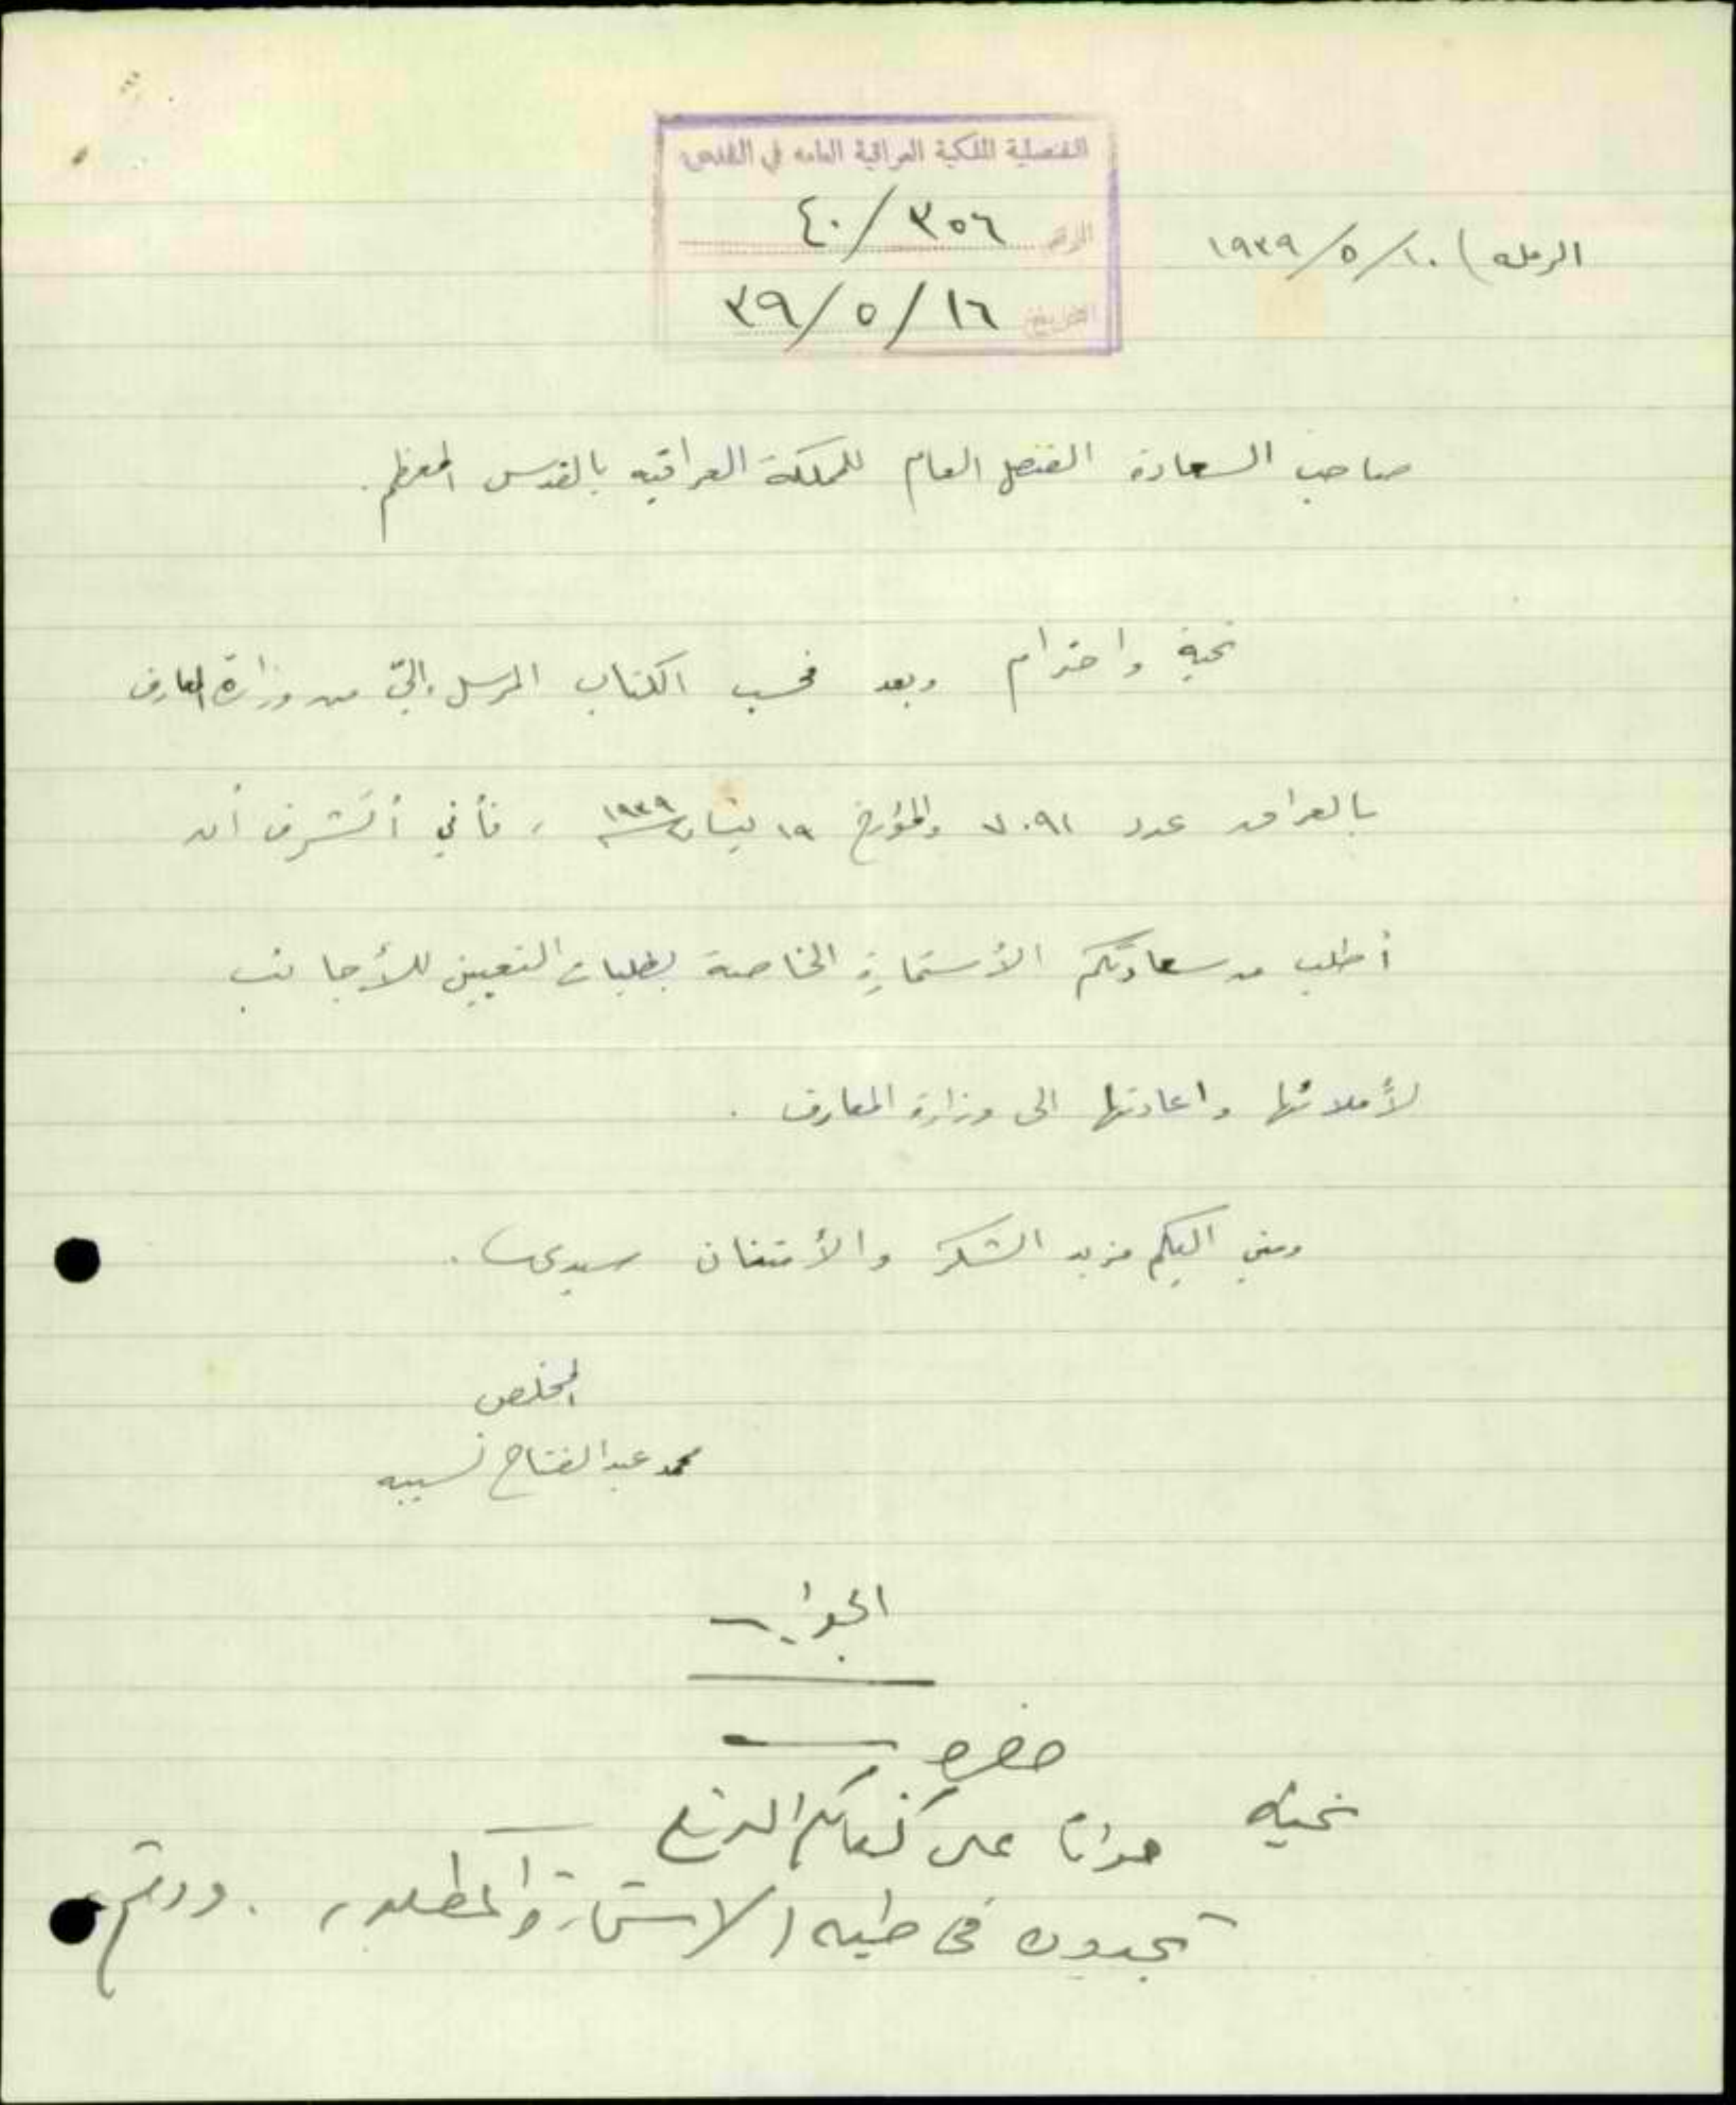 القنصلية الملكية العراقية العامه في القدس
الرقم ٤٠/٣٥٦
التاريخ ٣٩/٥/١٦
الرمله ) ١٩٣٩/٥/١٠
صاحب السعادة القنصل العام للمملكة العراقيه بالقدس المعظم .
تحية واحترام وبعد فحسب الكتاب المرسل إليّ من وزارة المعارف
بالعراق عدد ٧٠٩١ والمؤرخ ١٩ نيسان سنة ١٩٣٩ ، فأني أتشرف أن
أطلب من سعادتكم الأستمارة الخاصة بطلبات التعيين للأجانب
لأملائها واعادتها الى وزارة المعارف .
ومني اليكم مزيد الشكر والأمتنان سيدي .
المخلص
محمد عبد الفتاح نسيبه
الجواب
حضرة
تحية جوابا على كتابكم
تجدون في طيه الاستمارة المطلوبة . ودمتم